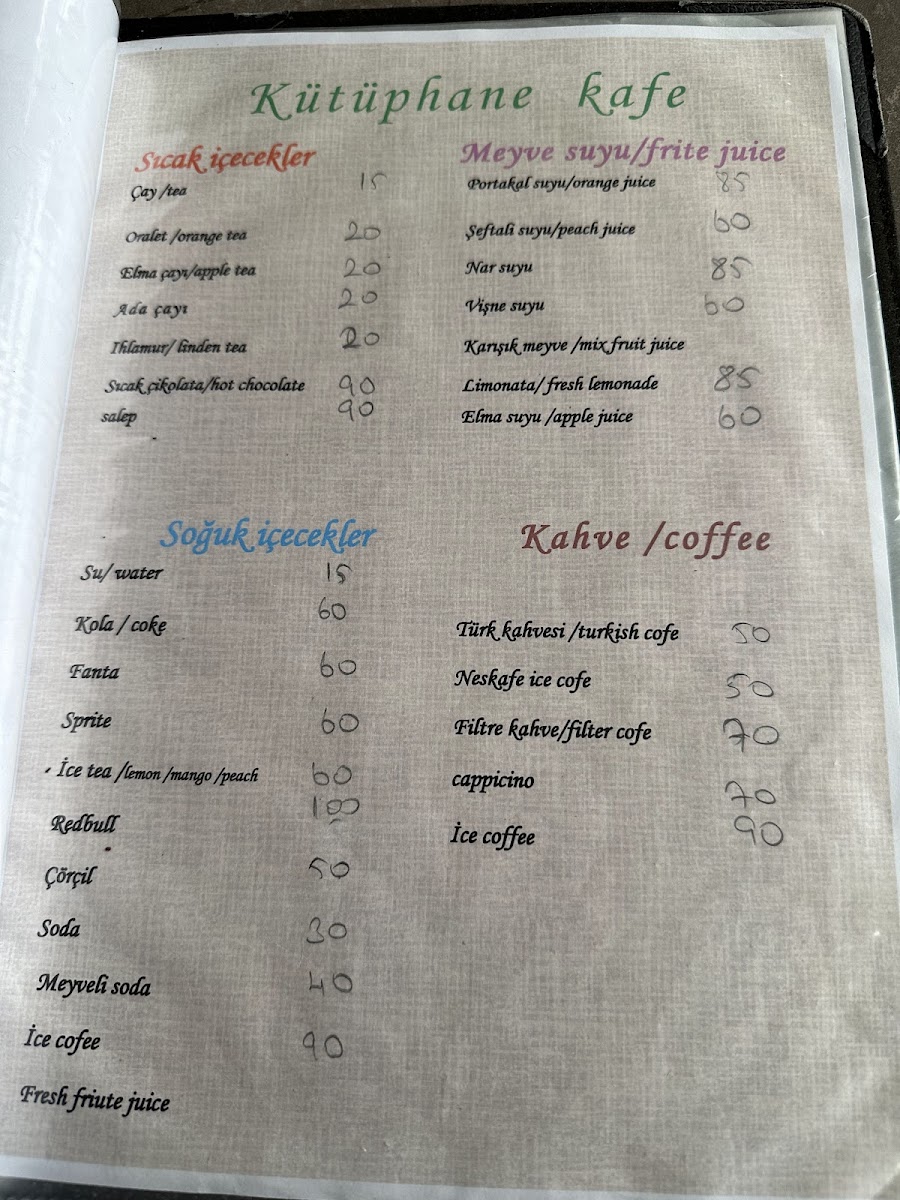 Kütüphane kafe
Sıcak içecekler
Çay /tea 15
Oralet /orange tea 20
Elma çayı/apple tea 20
Ada çayı 20
Ihlamur/ linden tea 20
Sıcak çikolata/hot chocolate 90
salep 90
Meyve suyu/frite juice
Portakal suyu/orange juice 85
Şeftali suyu/peach juice 60
Nar suyu 85
Vişne suyu 60
Karışık meyve /mix fruit juice
Limonata/ fresh lemonade 85
Elma suyu /apple juice 60
Soğuk içecekler
Su/ water 15
Kola / coke 60
Fanta 60
Sprite 60
İce tea /lemon /mango /peach 60
Redbull 100
Çörçil 50
Soda 30
Meyveli soda 40
İce cofee 90
Fresh friute juice
Kahve /coffee
Türk kahvesi /turkish cofe 50
Neskafe ice cofe 50
Filtre kahve/filter cofe 70
cappicino 70
İce coffee 90